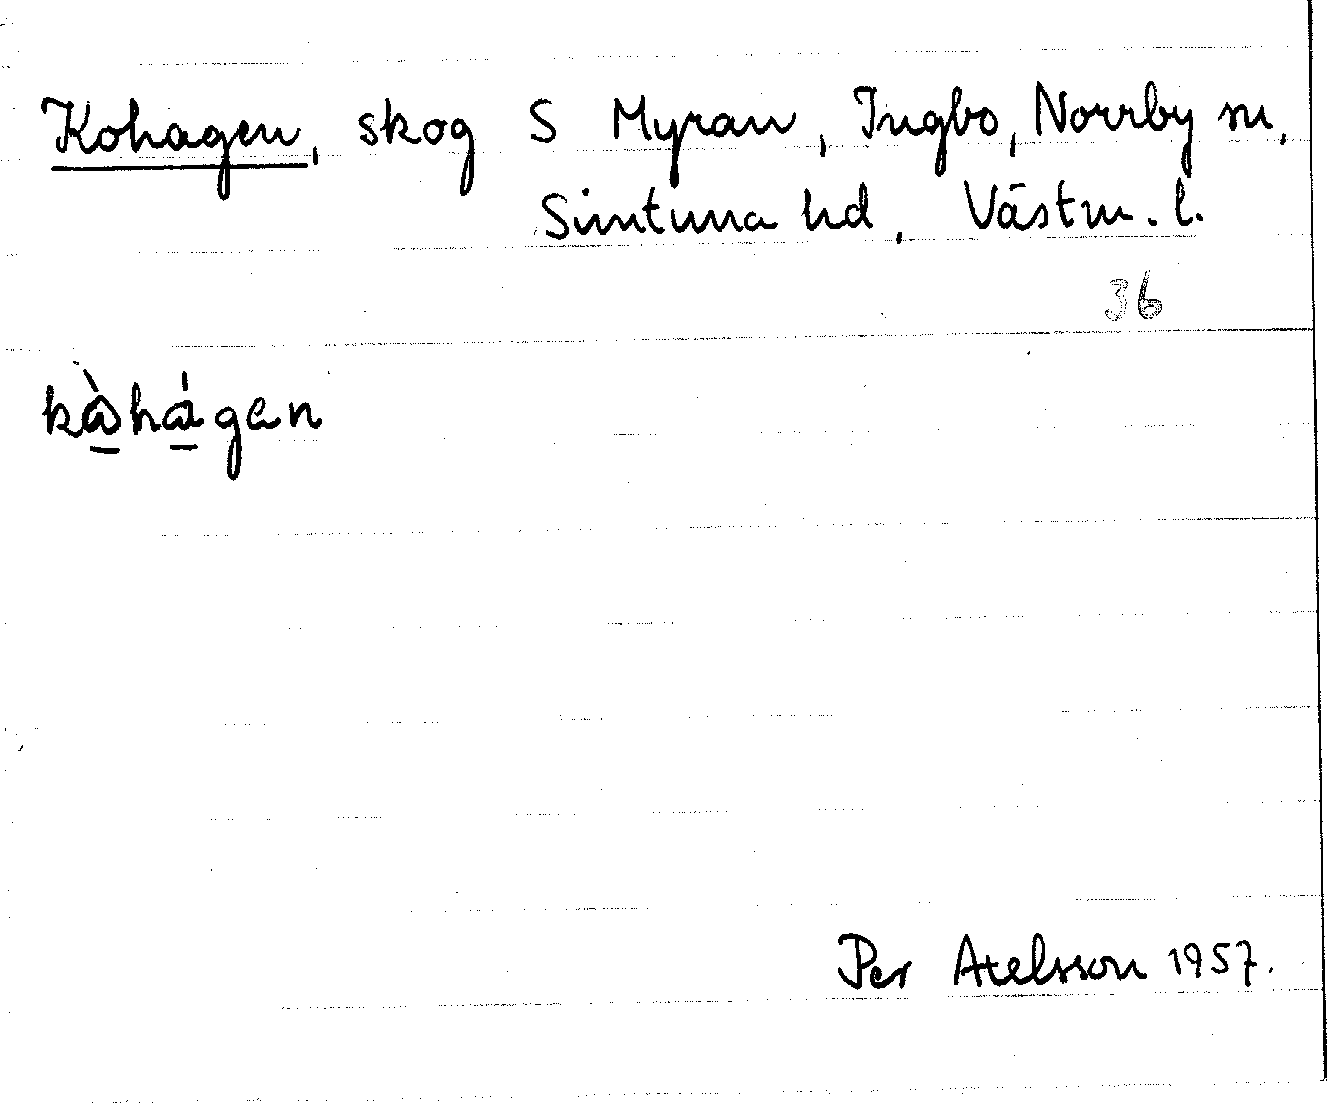 Kohagen, skog S Myran, Ingbo, Norrby sn,
Simtuna hd, Västm. l.
36
kàhágen
Per Axelsson 1957.